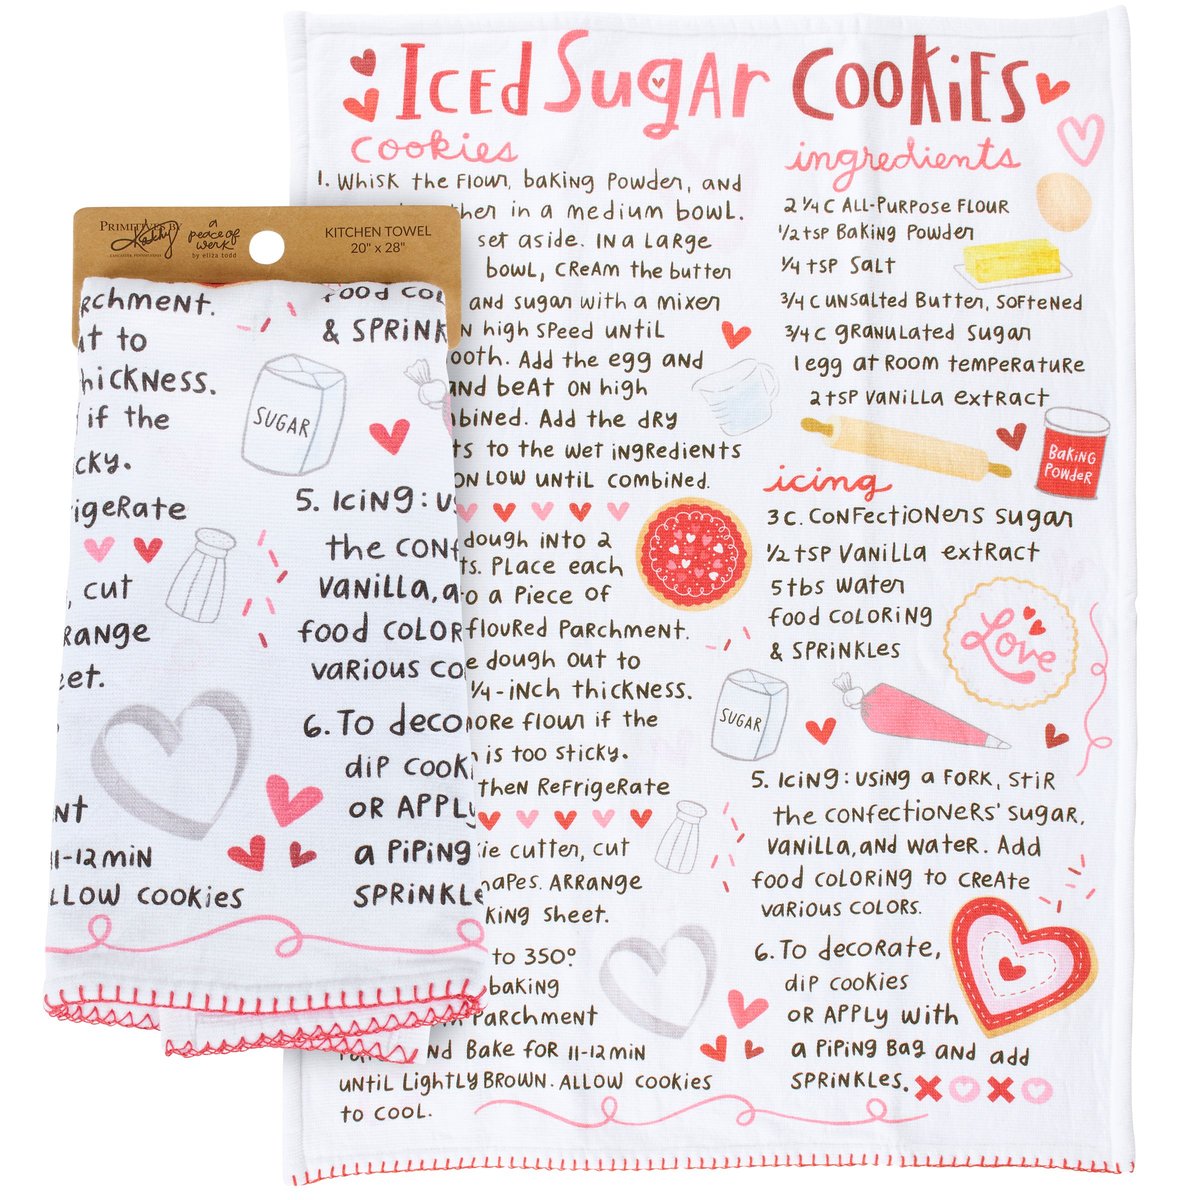 Iced Sugar Cookies
cookies
1. Whisk the flour, baking powder, and
in a medium bowl.
set aside. In a large
bowl, cream the butter
and sugar with a mixer
high speed until
Add the egg and
and beat on high
Add the dry
to the wet ingredients
on low until combined.
dough into 2
Place each
a piece of
floured parchment.
dough out to
1/4-inch thickness.
flour if the
is too sticky.
then refrigerate
cutter, cut
Arrange
sheet.
to 350°
baking
parchment
and bake for 11-12 min
until lightly brown. Allow cookies
to cool.
ingredients
2 1/4 c all-purpose flour
1/2 tsp baking powder
1/4 tsp salt
3/4 c unsalted butter, softened
3/4 c granulated sugar
1 egg at room temperature
2 tsp vanilla extract
Baking
Powder
icing
3 c. confectioners sugar
1/2 tsp vanilla extract
5 tbs water
food coloring
& sprinkles
Love
SUGAR
5. Icing: using a fork, stir
the confectioners' sugar,
vanilla, and water. Add
food coloring to create
various colors.
6. To decorate,
dip cookies
or apply with
a piping bag and add
sprinkles. XOXO
PRIMITIVES BY
Kathy
a
peace of
work
by eliza todd
KITCHEN TOWEL
20" x 28"
to
thickness.
if the
refrigerate
cut
11-12 min
cookies
food
& sprink
SUGAR
5. Icing:
the
vanilla,
food
various
6. To
dip
or apply
a piping